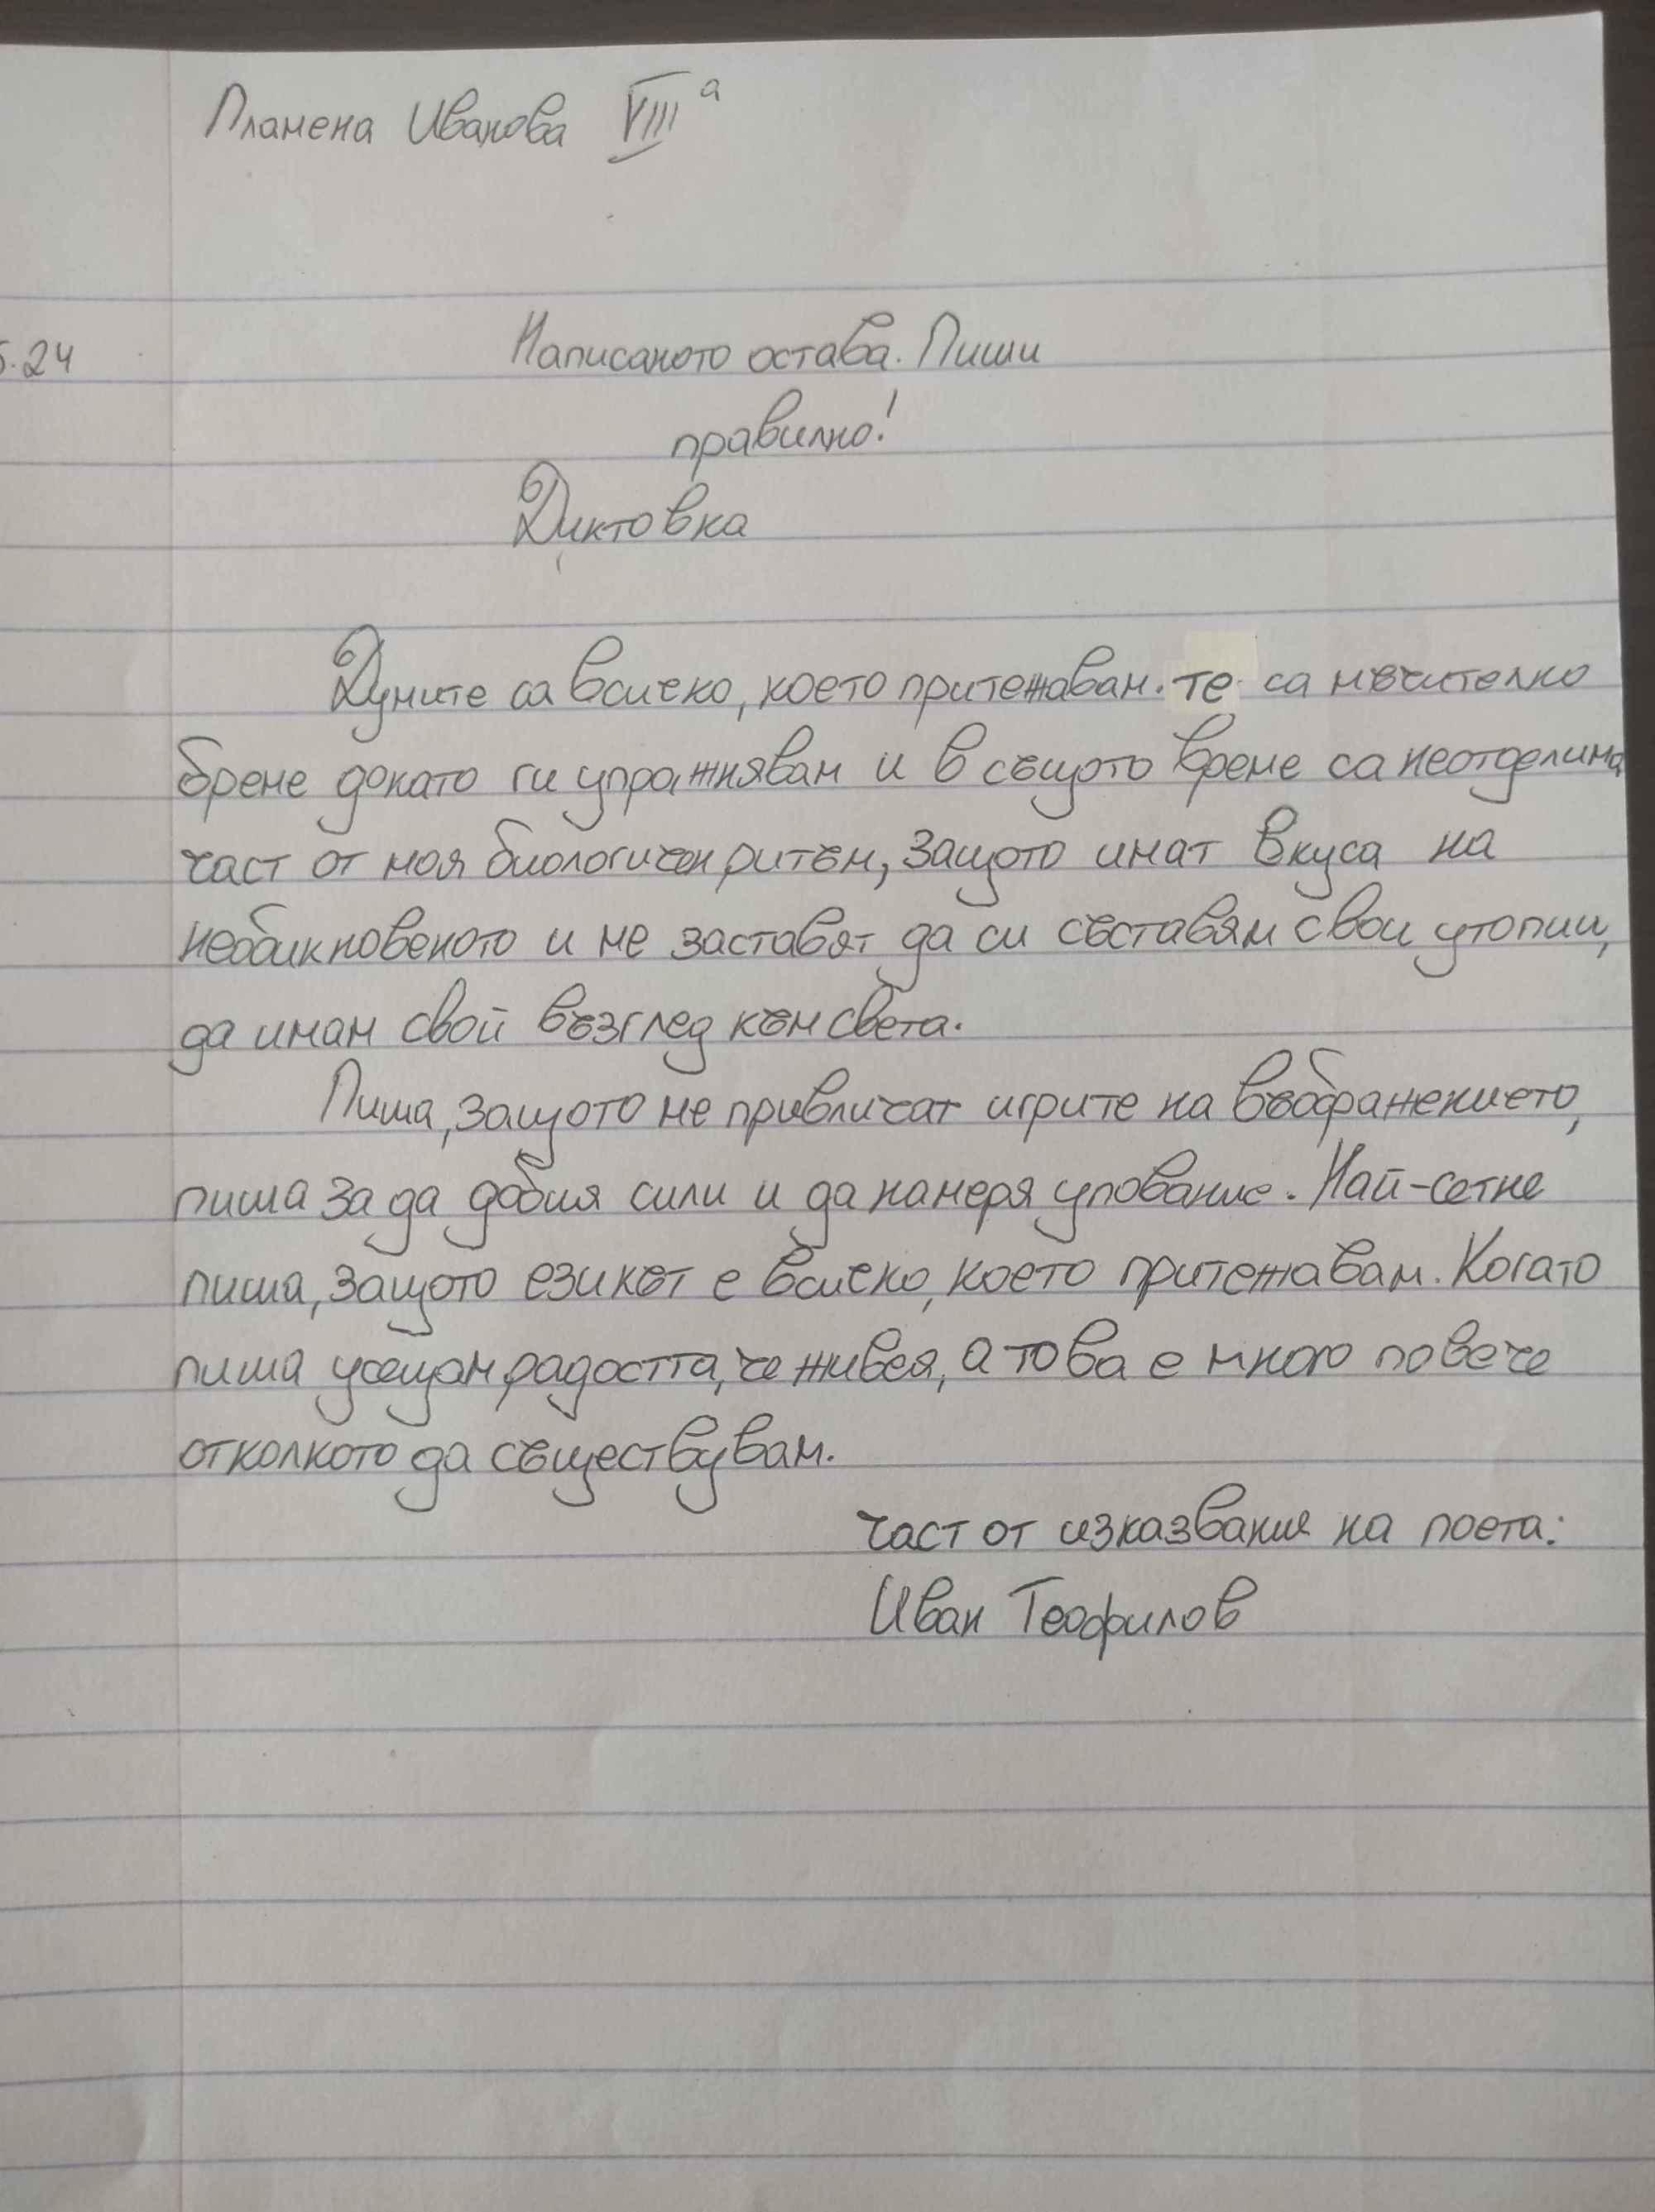 Пламена Иванова VIII а
5.24
Написаното остава. Пиши
правилно!
Диктовка
Думите са всичко, което притежавам. те са мъчително
бреме докато ги упражнявам и в същото време са неотделима
част от моя биологичен ритъм, защото имат вкуса на
необикновеното и ме заставят да си съставям свои утопии,
да имам свой възглед към света.
Пиша, защото ме привличат игрите на въображението,
пиша за да добия сили и да намеря упование. Най-сетне
пиша, защото езикът е всичко, което притежавам. Когато
пиша усещам радостта, че живея, а това е много повече
отколкото да съществувам.
част от изказвания на поета:
Иван Теофилов